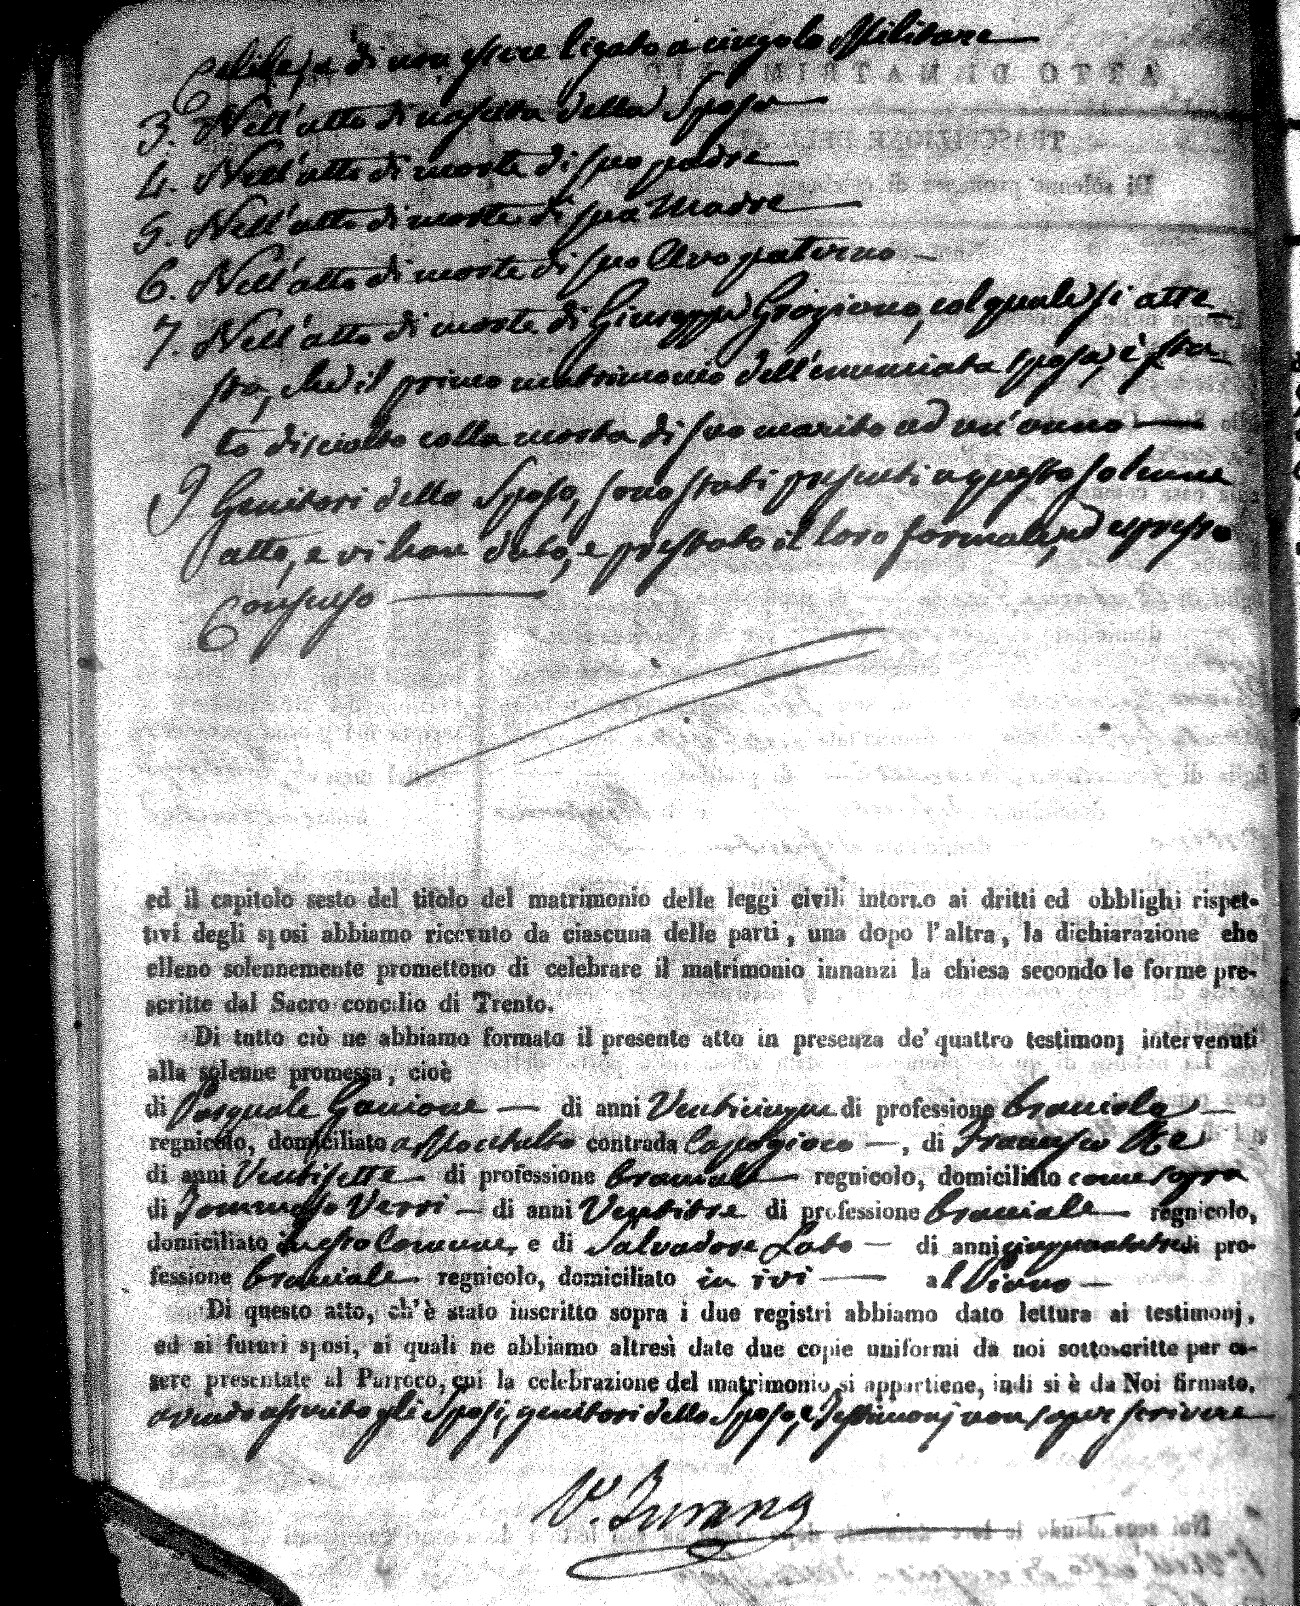 Celibe, e di non essere ligato a cingolo Militare
3. Nell'atto di nascita della Sposa
4. Nell'atto di morte di suo padre
5. Nell'atto di morte di sua Madre
6. Nell'atto di morte di suo Avo paterno
7. Nell'atto di morte di Giuseppe Graziono, col quale si atte-
sta, che il primo matrimonio dell'enunciata sposa, è sta-
to disciolto colla morte di suo marito ad un'anno
I Genitori dello Sposo, sono stati presenti a questo solenne
atto, e vi han dato, e prestato il loro formale, ed espresso
Consenso
ed il capitolo sesto del titolo del matrimonio delle leggi civili intorno ai dritti ed obblighi rispet-
tivi degli sposi abbiamo ricevuto da ciascuna delle parti, una dopo l'altra, la dichiarazione che
elleno solennemente promettono di celebrare il matrimonio innanzi la chiesa secondo le forme pre-
scritte dal Sacro concilio di Trento.
Di tutto ciò ne abbiamo formato il presente atto in presenza de' quattro testimonj intervenuti
alla solenne promessa, cioè
di Pasquale Ganione — di anni Venticinque di professione bracciale
regnicolo, domiciliato contrada Capogioco —, di Francesco
di anni Ventisette di professione bracciale regnicolo, domiciliato come sopra
di Tommaso Verri — di anni Ventitre di professione bracciale regnicolo,
domiciliato in esto Comune, e di Salvadore Lato — di anni cinquantatre di pro-
fessione bracciale regnicolo, domiciliato in ivi — al Piano —
Di questo atto, ch'è stato inscritto sopra i due registri abbiamo dato lettura ai testimonj,
ed ai futuri sposi, ai quali ne abbiamo altresì date due copie uniformi da noi sottoscritte per es-
sere presentate al Parroco, cui la celebrazione del matrimonio si appartiene, indi si è da Noi firmato.
avendo asserito gli Sposi, genitori dello Sposo, e Testimonj non saper scrivere